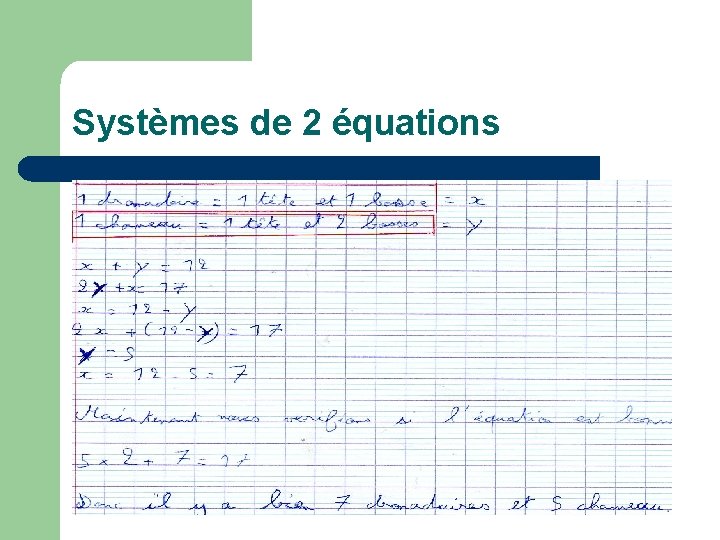 Systèmes de 2 équations
1 dromadaire = 1 tête et 1 bosse = x
1 chameau = 1 tête et 2 bosses = y
x + y = 12
2y + x = 17
x = 12 - y
2x + (12 - y) = 17
y = 5
x = 12 - 5 = 7
Maintenant nous verifions si l'équation est bonne
5 x 2 + 7 = 17
Donc il y a bien 7 dromadaires et 5 chameau.